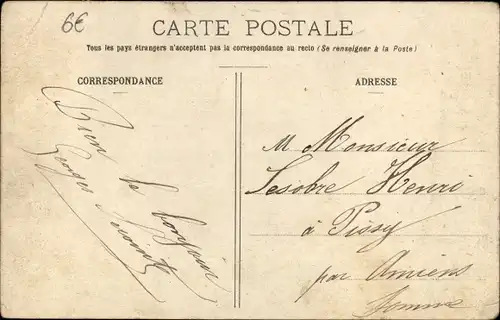 6€
CARTE POSTALE
Tous les pays étrangers n'acceptent pas la correspondance au recto (Se renseigner à la Poste)
CORRESPONDANCE
Bien le bonjour
Georges
ADRESSE
M Monsieur
Lesobre Henri
à Pissy
par Amiens
Somme